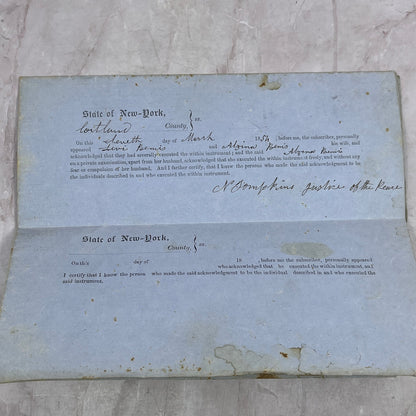 State of New-York, } ss.
Cortland County,
On this day of March 1854, before me, the subscriber, personally
appeared Levi Bemis and Alvina Bemis his wife, and
acknowledged that they had severally executed the within instrument; and the said Alvina Bemis
on a private examination, apart from her husband, acknowledged that she executed the within instrument freely, and without any
fear or compulsion of her husband. And I further certify, that I know the persons who made the said acknowledgment to be
the individuals described in and who executed the within instrument.
N Tompkins Justice of the Peace
State of New-York, } ss.
County,
On this day of 18 , before me the subscriber, personally appeared
who acknowledged that he executed the within instrument, and
I certify that I know the person who made the said acknowledgment to be the individual described in and who executed the
said instrument.